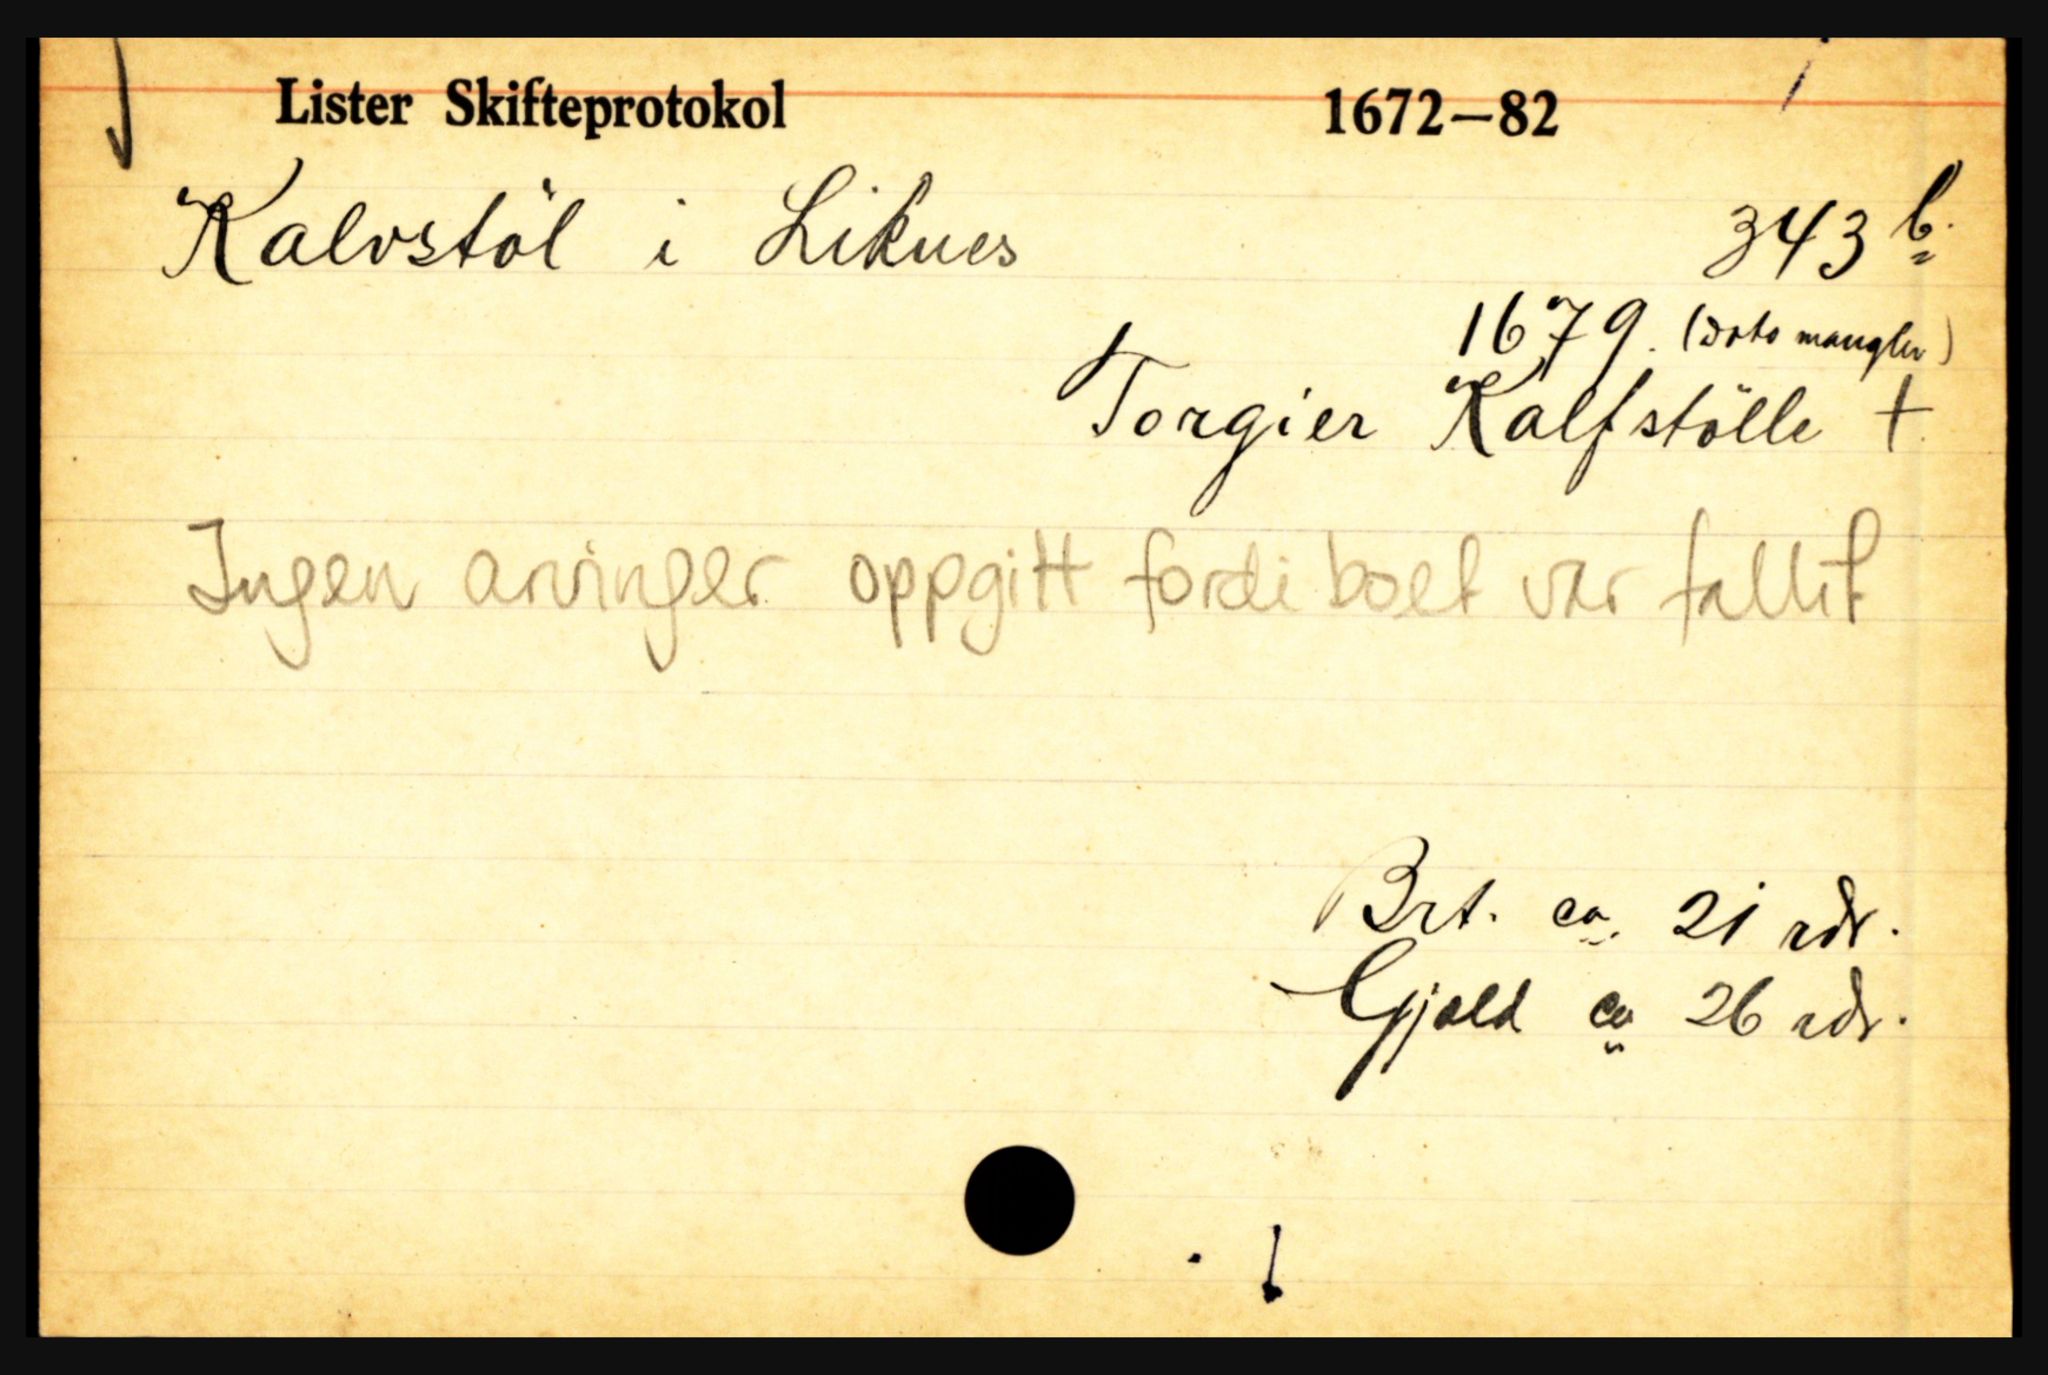 Lister Skifteprotokol 1672—82
Kalvstöl i Liknes 343 b.
1679. (Dato mangler)
Torgier Kalfstölle +
Ingen arvinger oppgitt fordi boet var fallit
Brt. ca. 21 rdr.
Gjæld ca 26 rdr.